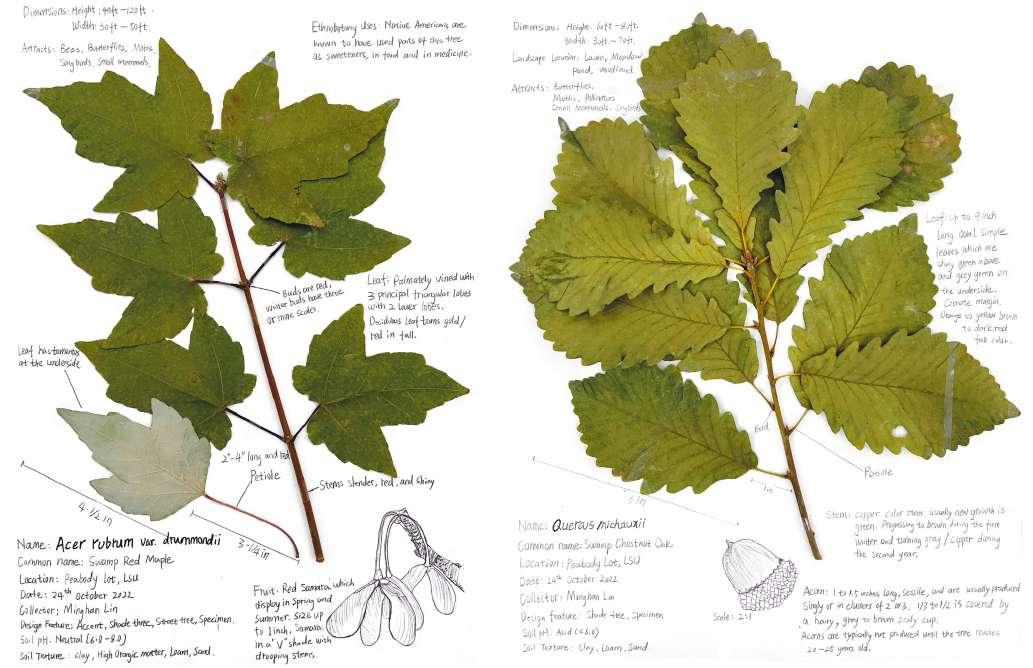 Dimensions: Height: 40ft - 120ft.
Width: 30ft - 50ft.
Attracts: Bees, Butterflies, Moths,
Songbirds, Small mammals.
Ethnobotany Uses: Native Americans are
known to have used parts of this tree
as sweeteners, in food and in medicine.
Buds are red,
winter buds have three
or more scales.
Leaf: Palmately vined with
3 principal triangular lobes
with 2 lower lobes.
Deciduous leaf turns gold/
red in fall.
Leaf has tomentos
at the underside
2"-4" long and red
Petiole
Stem: slender, red, and shiny
4-1/2 in
3-1/4 in
Name: Acer rubrum var. drummondii
Common name: Swamp Red Maple
Location: Peabody Lot, LSU
Date: 24th October 2022
Collector: Minghan Lin
Design Feature: Accent, Shade three, Street tree, Specimen.
Soil pH: Neutral (6.0-8.0)
Soil Texture: Clay, High Orangic matter, Loam, Sand.
Fruit: Red Samara which
display in Spring and
Summer. Size up
to 1 inch. Samara
in a "V" shade with
drooping stems.
Dimensions: Height: 60ft - 80ft.
Width: 30ft - 70ft.
Landscape Location: Lawn, Meadow
Pond, Woodland
Attracts: Butterflies,
Moths, Pollinators
Small Mammals, Songbirds
Leaf: Up to 9 inch
long Oval simple
leaves which are
shiny green above
and grey green on
the underside.
Crenate margin.
Orange to yellow brown
to dark red
fall color.
Bud
Petiole
1 in
6 in
Name: Quercus michauxii
Common name: Swamp Chestnut Oak
Location: Peabody Lot, LSU
Date: 24th October 2022
Collector: Minghan Lin
Design Feature: Shade tree, Specimen
Soil pH: Acid (<6.0)
Soil Texture: Clay, Loam, Sand
Scale: 2:1
Stem: copper color stem, usually new growth is
green. Progressing to brown during the first
winter and turning gray / copper during
the second year.
Acorn: 1 to 1.5 inches long, Sessile, and are usually produced
Singly or in clusters of 2 or 3. 1/3 to 1/2 is covered by
a hairy, grey to brown scaly cup.
Acorns are typically not produced until the tree reaches
20-25 years old.